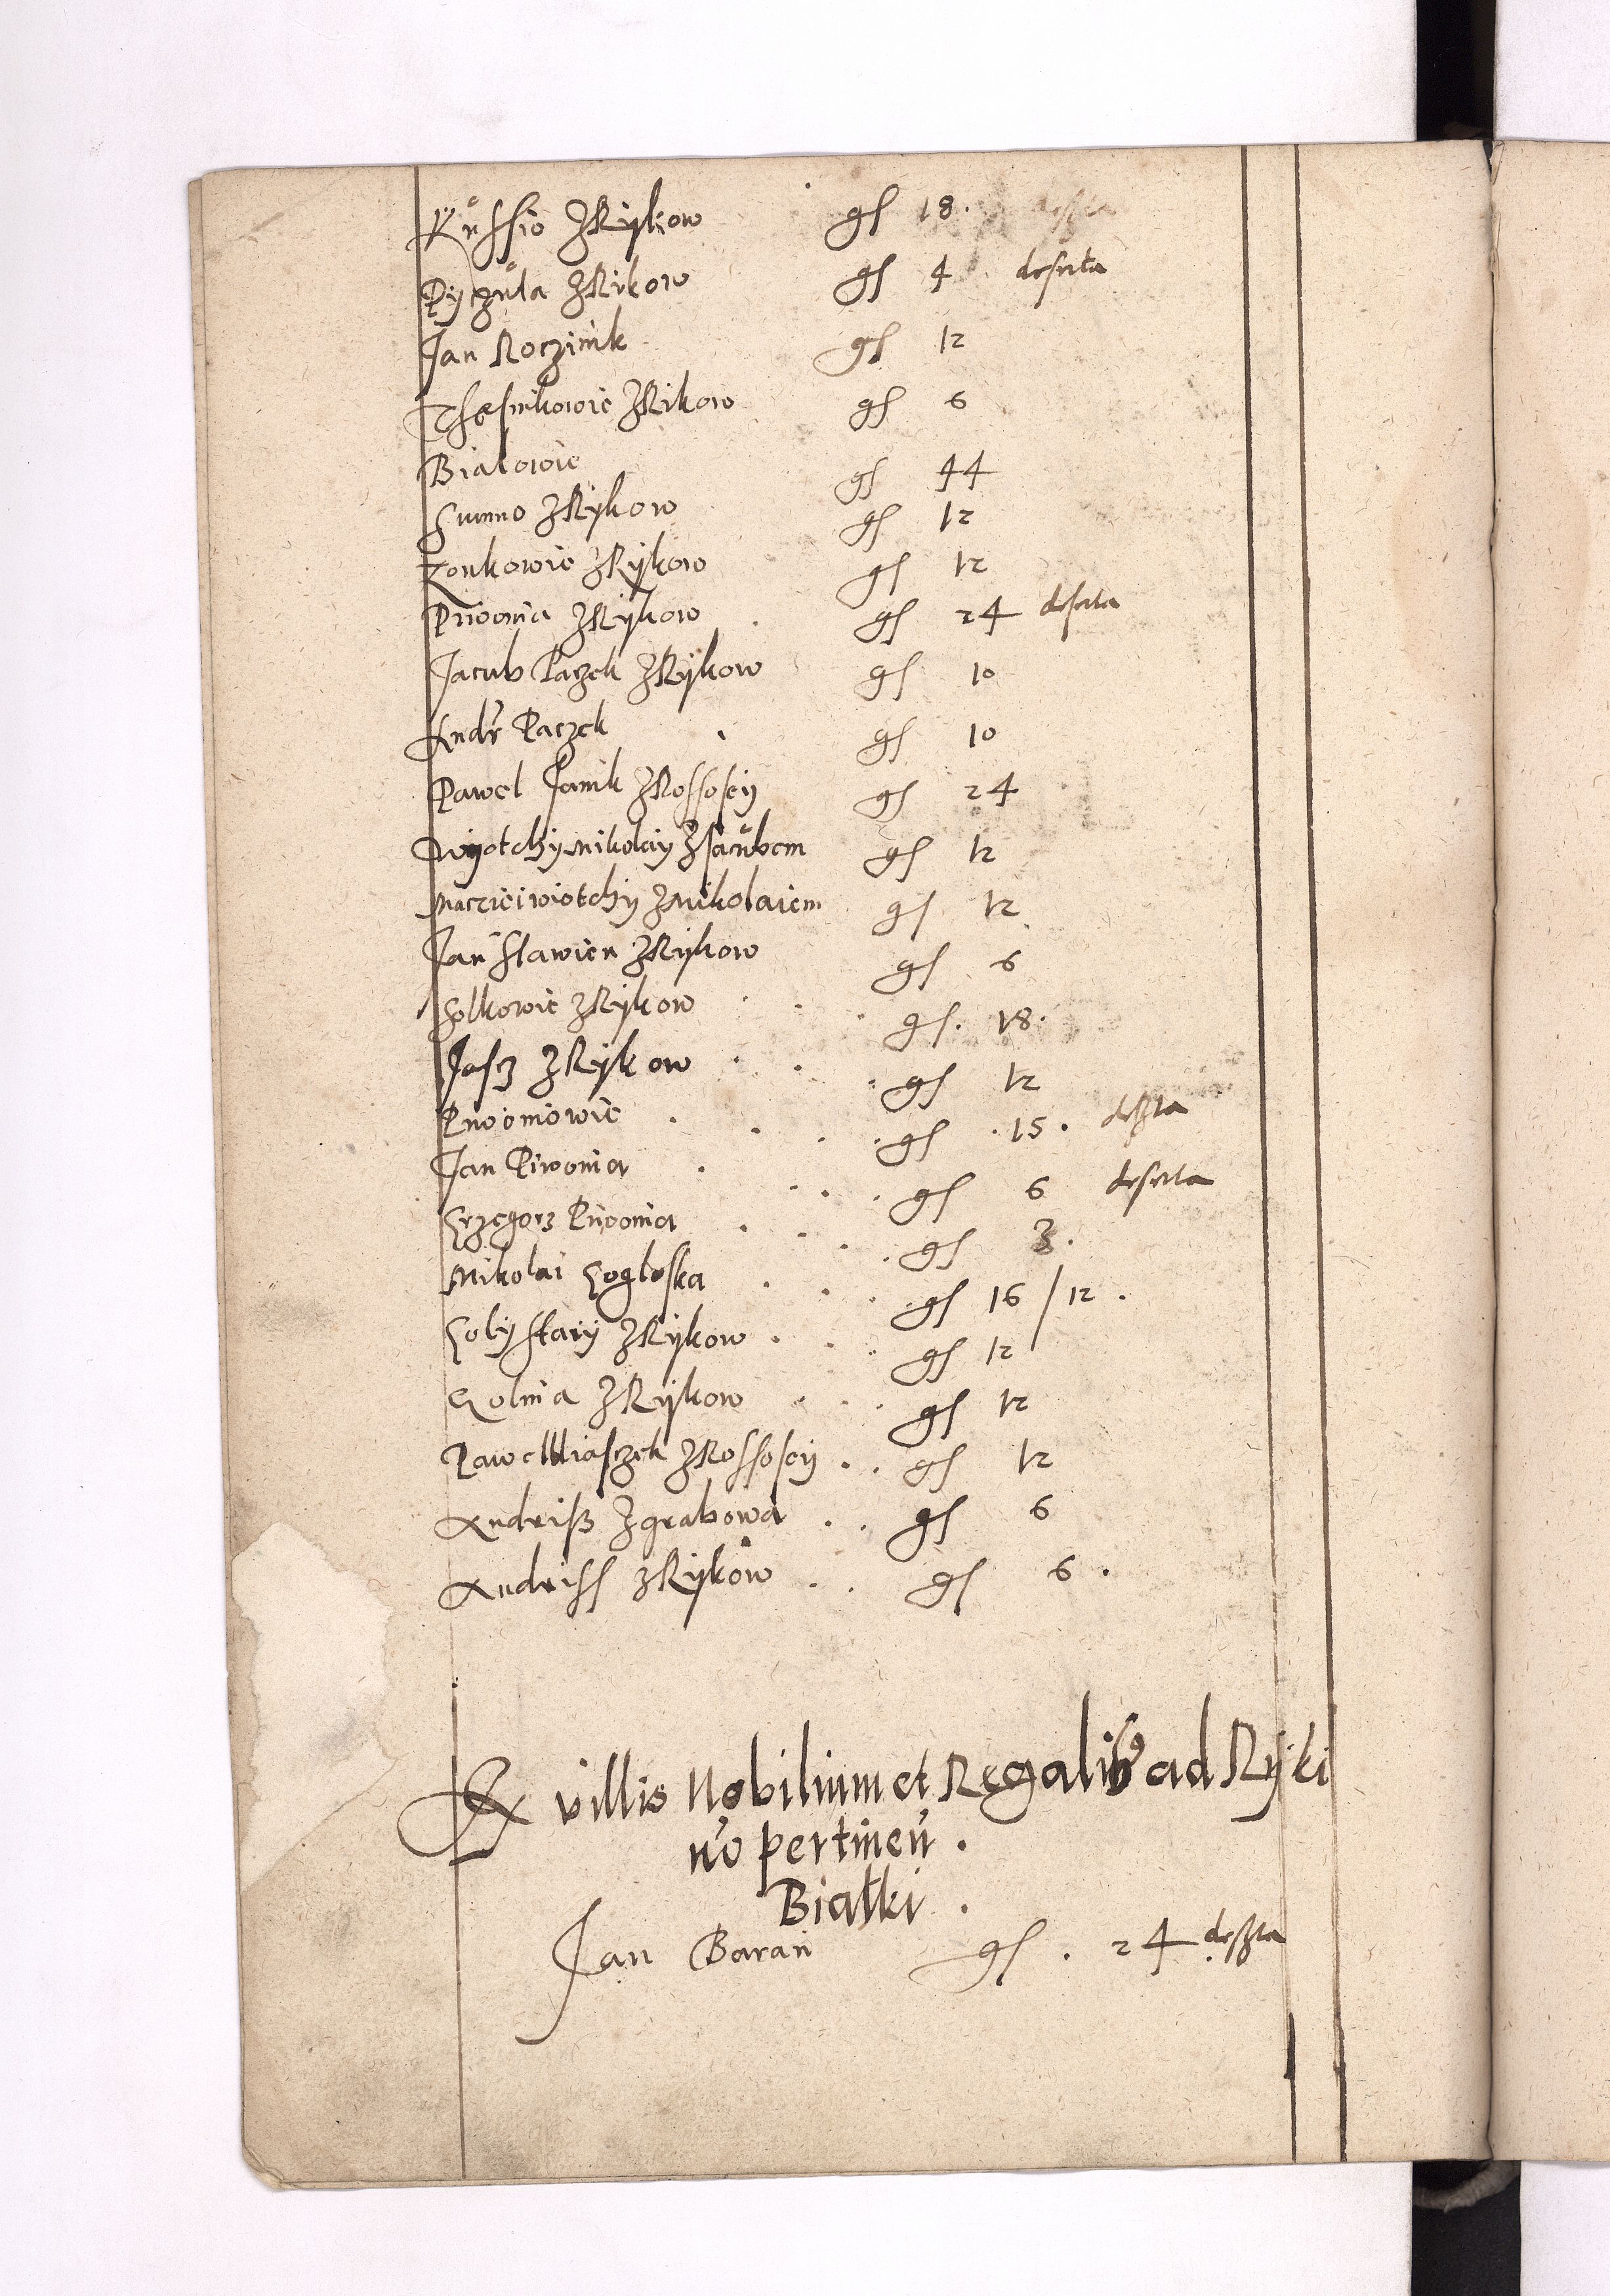 Kussio ZRykow gs 18. deserta
Pyczula ZRikow gs 4 deserta
Jan Koczinik gs 12
Thesnikowie ZRikow gs 6
Bialowie gs 44
Gumno ZRykow gs 12
Zonkowie ZRykow gs 12
Piwonia ZRykow gs 24 deserta
Jacub Paczek ZRykow gs 10
Andr Paczek gs 10
Pawel Janik ZRossoschy gs 24
Wyotchy nikolay Zjacubem gs 12
Macziei wiotchy Znikolaiem gs 12
Jan Slawien ZRykow gs 6
Golkowie ZRykow gs. 18.
Jasz ZRykow gs 12
Piwoniowie gs 15. deserta
Jan Piwonia gs 6 deserta
Grzegorz Piwonia gs 3.
Nikolai Gogloska gs 16 / 12.
Goly stary ZRykow gs 12
Golnia ZRykow gs 12
Pawel gs 12
Andrisz Zgrabowa gs 6
Andriss zRykow gs 6.
Ex villis Nobilium et Regalibus ad Ryki
no pertinen.
Bialki.
Jan Baran gs. 24 deserta